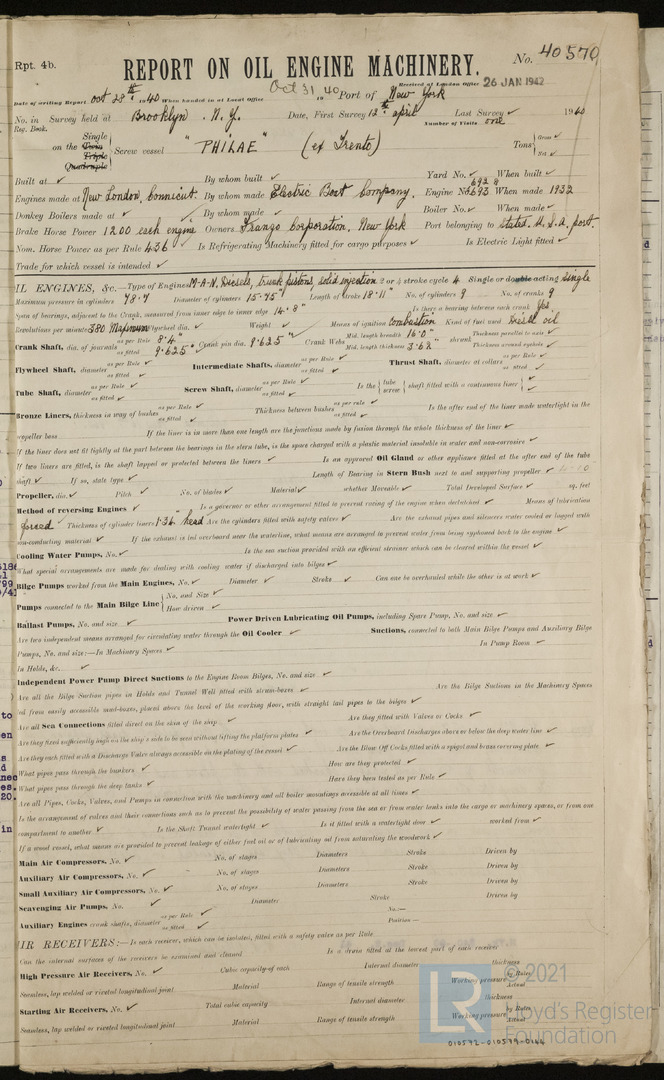 Rpt. 4b.
No. 40570
REPORT ON OIL ENGINE MACHINERY.
Received at London Office 26 JAN 1942
Date of writing Report Oct 28th 1940 When handed in at Local Office Oct 31 1940 Port of New York
No. in Survey held at Brooklyn. N.Y. Date, First Survey 12th April Last Survey ✓ 1940
Reg. Book. Number of Visits one
on the Single Twin Triple Quadruple Screw vessel "PHILAE" (ex Trento) Tons Gross ✓ Net ✓
Built at ✓ By whom built ✓ Yard No. ✓ When built ✓
Engines made at New London, Connicut. By whom made Electric Boat Company. Engine No. 693 When made 1932
Donkey Boilers made at ✓ By whom made ✓ Boiler No. ✓ When made ✓
Brake Horse Power 1200 each engine Owners Frango Corporation, New York Port belonging to States. U.S.A. port.
Nom. Horse Power as per Rule 436 Is Refrigerating Machinery fitted for cargo purposes ✓ Is Electric Light fitted ✓
Trade for which vessel is intended ✓
IL ENGINES, &c.—Type of Engines M-A-N, Diesels, trunk pistons, solid injection 2 or 4 stroke cycle 4 Single or double acting Single
Maximum pressure in cylinders Diameter of cylinders 15.75" Length of stroke 18.11" No. of cylinders 9 No. of cranks 9
Span of bearings, adjacent to the Crank, measured from inner edge to inner edge 14.8" Is there a bearing between each crank Yes
Revolutions per minute 380 Maximum Flywheel dia. ✓ Weight ✓ Means of ignition Combustion Kind of fuel used Diesel oil
Crank Shaft, dia. of journals as per Rule 8.4 as fitted 9.625" Crank pin dia. 9.625" Crank Webs Mid. length breadth 16.0" Mid. length thickness 3.62" shrunk Thickness parallel to axis ✓ Thickness around eyehole ✓
Flywheel Shaft, diameter as per Rule ✓ as fitted ✓ Intermediate Shafts, diameter as per Rule ✓ as fitted ✓ Thrust Shaft, diameter at collars as per Rule ✓ as fitted ✓
Tube Shaft, diameter as per Rule ✓ as fitted ✓ Screw Shaft, diameter as per Rule ✓ as fitted ✓ Is the tube screw shaft fitted with a continuous liner ✓
Bronze Liners, thickness in way of bushes as per Rule ✓ as fitted ✓ Thickness between bushes as per rule ✓ as fitted ✓ Is the after end of the liner made watertight in the
propeller boss If the liner is in more than one length are the junctions made by fusion through the whole thickness of the liner ✓
If the liner does not fit tightly at the part between the bearings in the stern tube, is the space charged with a plastic material insoluble in water and non-corrosive ✓
If two liners are fitted, is the shaft lapped or protected between the liners ✓ Is an approved Oil Gland or other appliance fitted at the after end of the tube
shaft ✓ If so, state type ✓ Length of Bearing in Stern Bush next to and supporting propeller ✓
Propeller, dia. ✓ Pitch ✓ No. of blades ✓ Material ✓ whether Moveable ✓ Total Developed Surface ✓ sq. feet
Method of reversing Engines ✓ Is a governor or other arrangement fitted to prevent racing of the engine when declutched ✓ Means of lubrication
forced ✓ Thickness of cylinder liners 1.36" head Are the cylinders fitted with safety valves ✓ Are the exhaust pipes and silencers water cooled or lagged with
non-conducting material ✓ If the exhaust is led overboard near the waterline, what means are arranged to prevent water from being syphoned back to the engine ✓
Cooling Water Pumps, No. ✓ Is the sea suction provided with an efficient strainer which can be cleared within the vessel ✓
What special arrangements are made for dealing with cooling water if discharged into bilges ✓
Bilge Pumps worked from the Main Engines, No. ✓ Diameter ✓ Stroke ✓ Can one be overhauled while the other is at work ✓
Pumps connected to the Main Bilge Line No. and Size ✓ How driven ✓
Ballast Pumps, No. and size ✓ Power Driven Lubricating Oil Pumps, including Spare Pump, No. and size ✓
Are two independent means arranged for circulating water through the Oil Cooler ✓ Suctions, connected to both Main Bilge Pumps and Auxiliary Bilge
Pumps, No. and size:—In Machinery Spaces ✓ In Pump Room ✓
In Holds, &c. ✓
Independent Power Pump Direct Suctions to the Engine Room Bilges, No. and size ✓
Are all the Bilge Suction pipes in Holds and Tunnel Well fitted with strum-boxes ✓ Are the Bilge Suctions in the Machinery Spaces
led from easily accessible mud-boxes, placed above the level of the working floor, with straight tail pipes to the bilges ✓
Are all Sea Connections fitted direct on the skin of the ship ✓ Are they fitted with Valves or Cocks ✓
Are they fixed sufficiently high on the ship's side to be seen without lifting the platform plates ✓ Are the Overboard Discharges above or below the deep water line ✓
Are they each fitted with a Discharge Valve always accessible on the plating of the vessel ✓ Are the Blow Off Cocks fitted with a spigot and brass covering plate ✓
What pipes pass through the bunkers ✓ How are they protected ✓
What pipes pass through the deep tanks ✓ Have they been tested as per Rule ✓
Are all Pipes, Cocks, Valves, and Pumps in connection with the machinery and all boiler mountings accessible at all times ✓
Is the arrangement of valves and their connections such as to prevent the possibility of water passing from the sea or from water tanks into the cargo or machinery spaces, or from one
compartment to another ✓ Is the Shaft Tunnel watertight ✓ Is it fitted with a watertight door ✓ worked from ✓
If a wood vessel, what means are provided to prevent leakage of either fuel oil or of lubricating oil from saturating the woodwork ✓
Main Air Compressors, No. ✓ No. of stages Diameters Stroke Driven by
Auxiliary Air Compressors, No. ✓ No. of stages Diameters Stroke Driven by
Small Auxiliary Air Compressors, No. ✓ No. of stages Diameters Stroke Driven by
Scavenging Air Pumps, No. ✓ Diameter Stroke Driven by
Auxiliary Engines crank shafts, diameter as per Rule ✓ as fitted ✓ No.— Position —
IR RECEIVERS:— Is each receiver, which can be isolated, fitted with a safety valve as per Rule
Can the internal surfaces of the receivers be examined and cleaned Is a drain fitted at the lowest part of each receiver
High Pressure Air Receivers, No. ✓ Cubic capacity of each Internal diameter thickness
Seamless, lap welded or riveted longitudinal joint Material Range of tensile strength Working pressure by Rules Actual
Starting Air Receivers, No. ✓ Total cubic capacity Internal diameter thickness
Seamless, lap welded or riveted longitudinal joint Material Range of tensile strength Working pressure by Rules Actual
LR © 2021 Lloyd's Register Foundation
010572-010579-0144